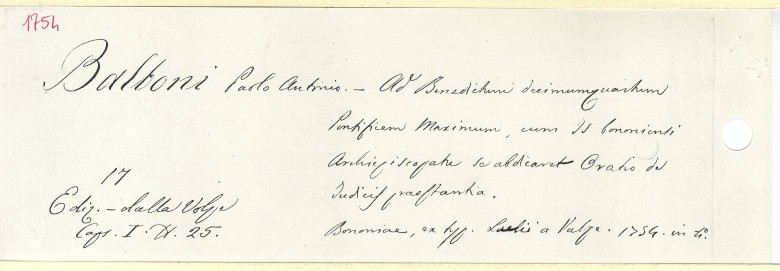 1754
Balboni Paolo Antonio. — Ad Benedictum decimumquartum
Pontificem Maximum, cum Is bononiensi
Archiepiscopatu se abdicaret Oratio de
Judicis praestantia.
17
Ediz. - dalla Volpe
Caps. I. N. 25.
Bononiae, ex typ. Laelii a Vulpe. 1754. in 4.